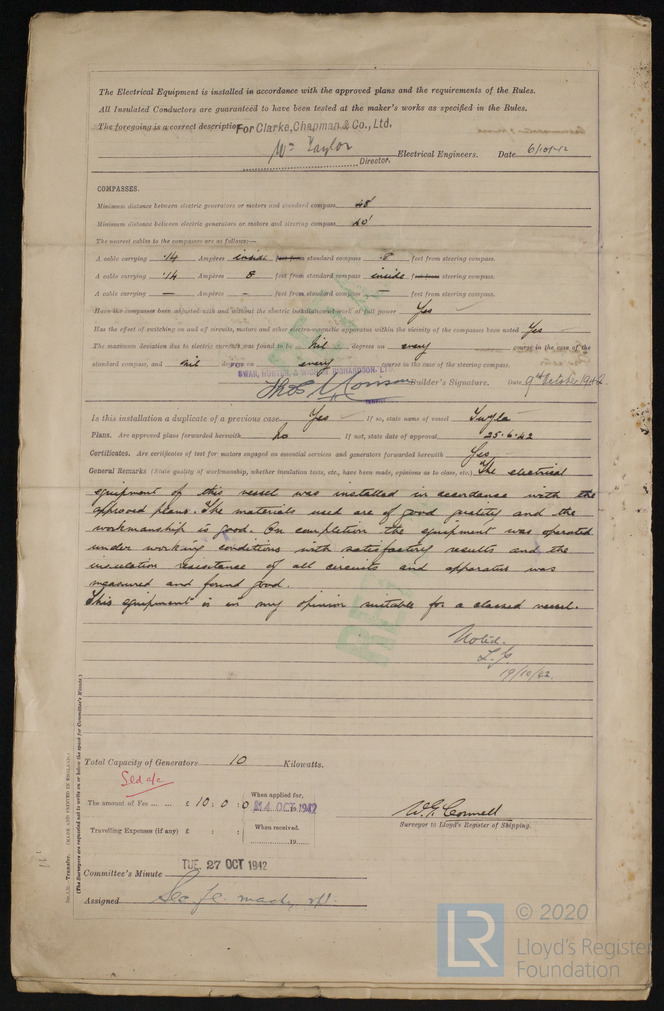 The Electrical Equipment is installed in accordance with the approved plans and the requirements of the Rules.
All Insulated Conductors are guaranteed to have been tested at the maker's works as specified in the Rules.
The foregoing is a correct description For Clarke, Chapman & Co., Ltd.
Wm Taylor Electrical Engineers. Date 6/10/42
Director.
COMPASSES.
Minimum distance between electric generators or motors and standard compass 48'
Minimum distance between electric generators or motors and steering compass 40'
The nearest cables to the compasses are as follows:—
A cable carrying .14 Ampères inside feet from standard compass 8 feet from steering compass.
A cable carrying .14 Ampères 8 feet from standard compass inside feet from steering compass.
A cable carrying — Ampères - feet from standard compass — feet from steering compass.
Have the compasses been adjusted with and without the electric installation at work at full power Yes
Has the effect of switching on and off circuits, motors and other electro-magnetic apparatus within the vicinity of the compasses been noted Yes
The maximum deviation due to electric currents was found to be Nil degrees on every course in the case of the
standard compass, and nil degrees on every course in the case of the steering compass.
SWAN, HUNTER, & WIGHAM RICHARDSON, LTD.
Builder's Signature. Date 9th October 1942
Is this installation a duplicate of a previous case Yes If so, state name of vessel
Plans. Are approved plans forwarded herewith No If not, state date of approval 25.6.42
Certificates. Are certificates of test for motors engaged on essential services and generators forwarded herewith Yes
General Remarks (State quality of workmanship, whether insulation tests, etc., have been made, opinions as to class, etc.) The electrical
equipment of this vessel was installed in accordance with the
approved plans. The materials used are of good quality and the
workmanship is good. On completion the equipment was operated
under working conditions with satisfactory results and the
insulation resistance of all circuits and apparatus was
measured and found good.
This equipment is in my opinion suitable for a classed vessel.
Noted.
19/10/42.
Total Capacity of Generators 10 Kilowatts.
The amount of Fee ... ... £ 10 : 0 : 0
When applied for,
14 OCT 1942
Travelling Expenses (if any) £ : :
When received.
19
W. G. Connell
Surveyor to Lloyd's Register of Shipping.
Committee's Minute TUE. 27 OCT 1942
Assigned See
Transfer. (MADE AND PRINTED IN ENGLAND.)
(The Surveyors are requested not to write on or below the space for Committee's Minute.)
LR © 2020
Lloyd's Register
Foundation